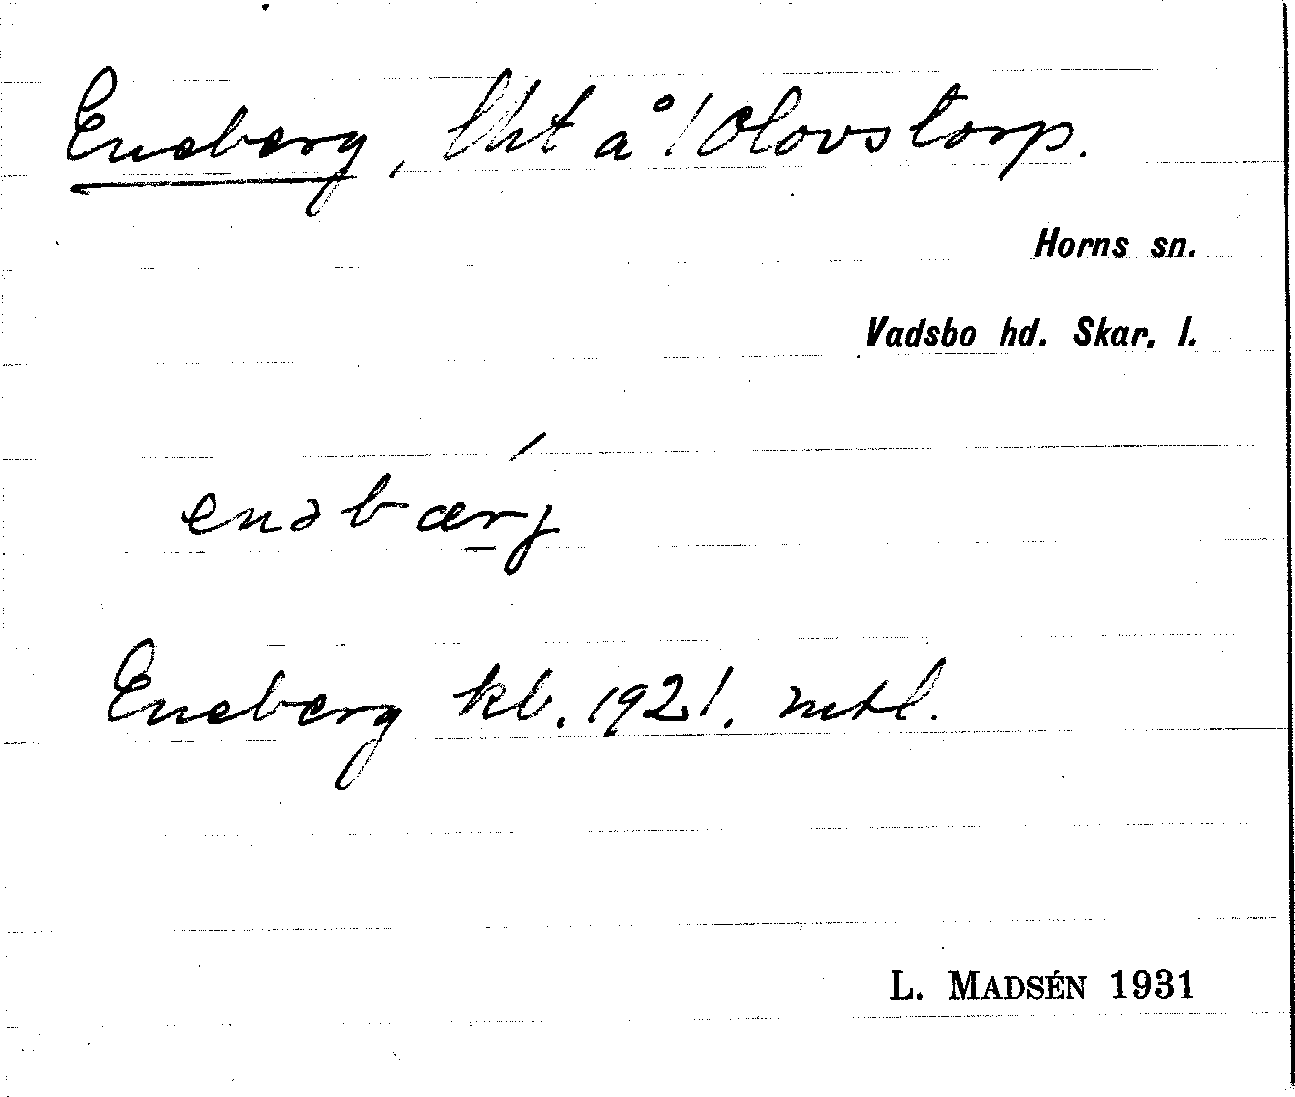 Eneberg, lht å 1 Olovstorp.
Horns sn.
Vadsbo hd. Skar. l.
enəbærj
Eneberg kb. 1921. mtl.
L. MADSÉN 1931